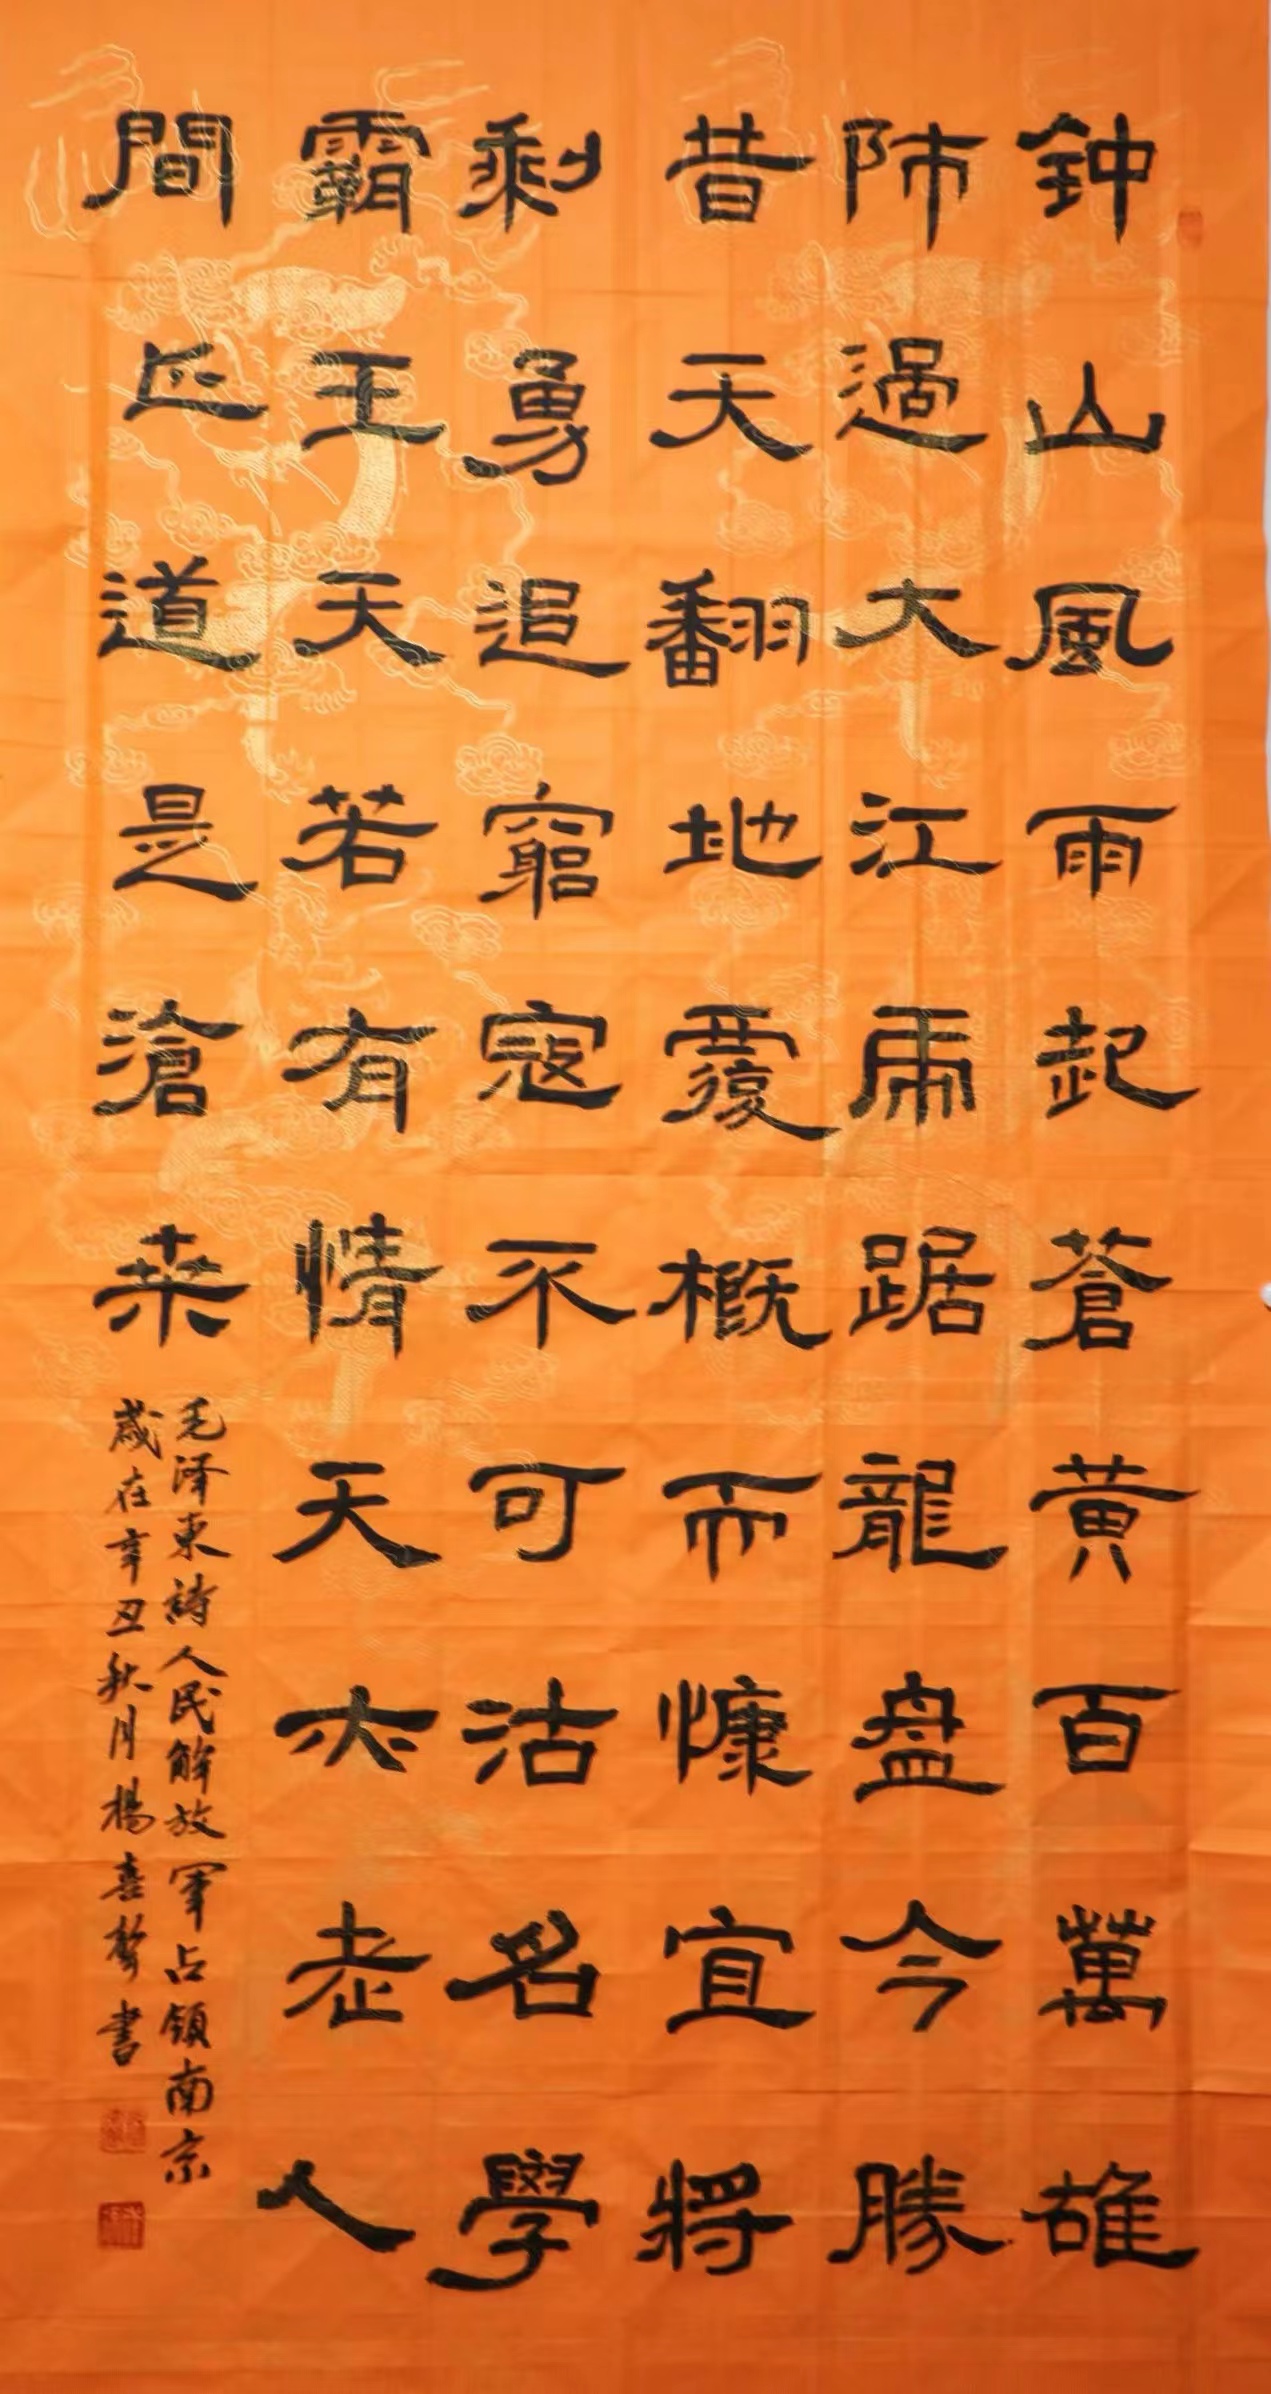 钟山風雨起蒼黃百萬雄
師過大江虎踞龍盤今勝
昔天翻地覆概而慷宜將
剩勇追窮寇不可沽名學
霸王天若有情天亦老人
間正道是滄桑
毛泽東詩人民解放軍占領南京
歲在辛丑秋月楊喜書